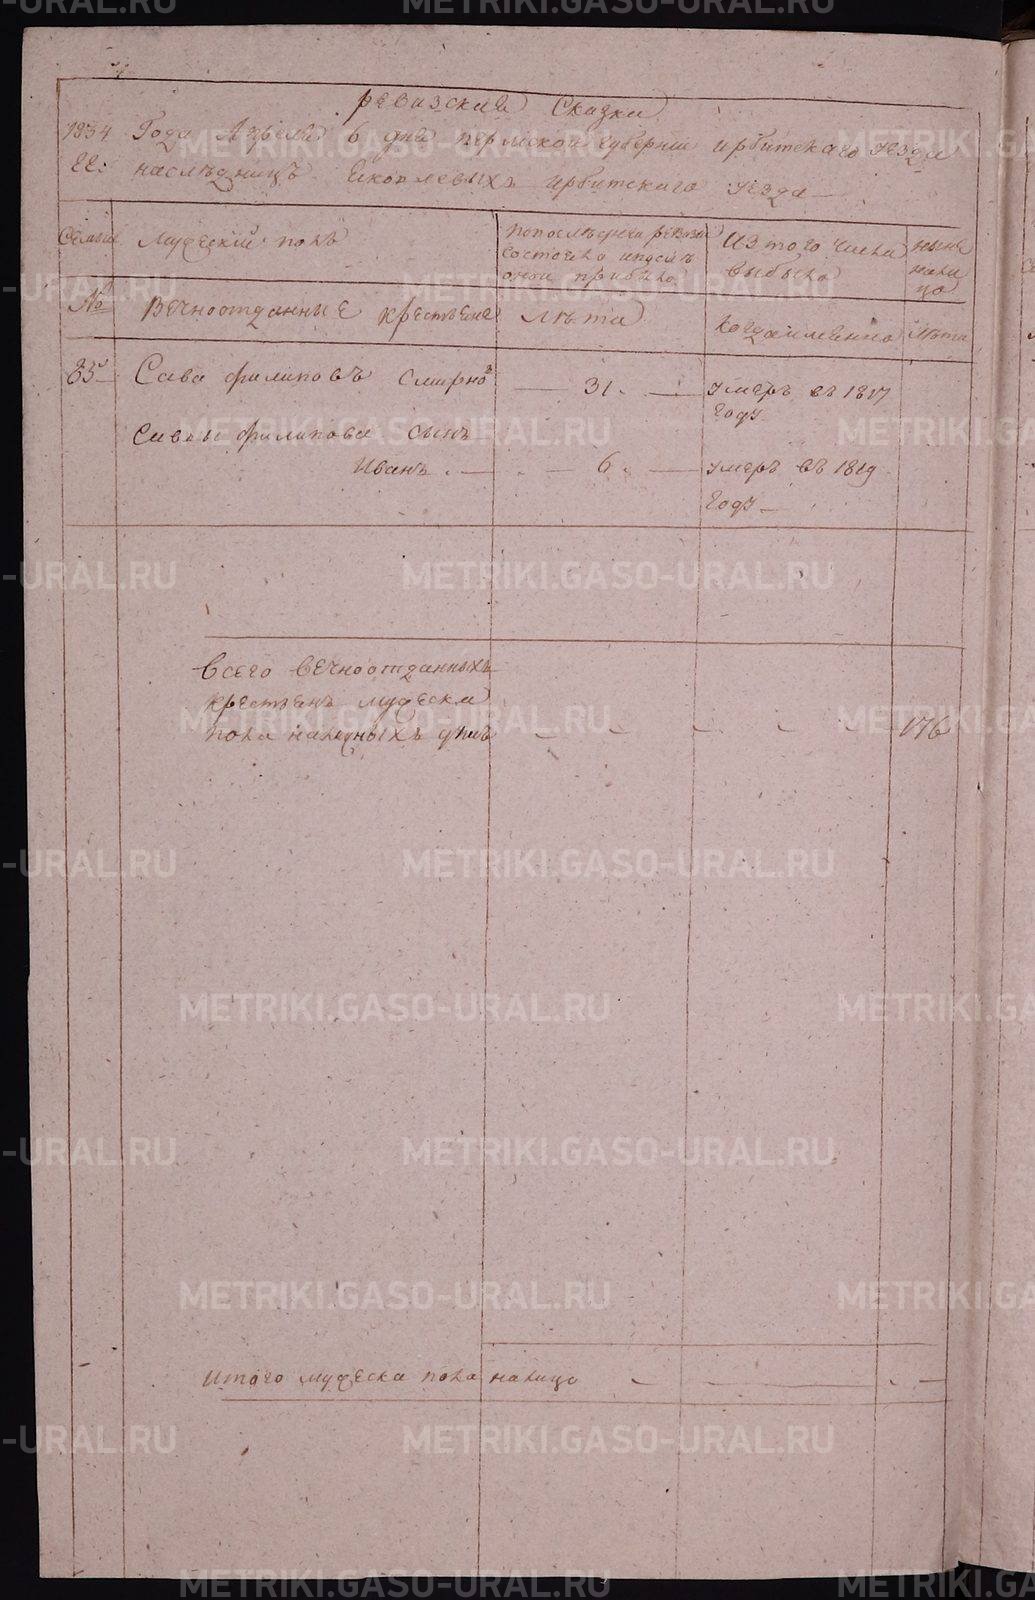 ревизския сказки
1834 Года Апреля 6 дня пермской губернии ирбитскаго уезда
наслѣдницъ Яковлевыхъ ирбитскаго уезда
Семьи
мужескій полъ
попоследнеи ревизіи
состояло ипослѣ
оной прибыло
Изтого числа
выбыло
ныне
нали
цо
№
Вечноотданные крестьяне
Лѣта
Когдаименно
Лѣта
85
Сава филиповъ Смирновъ
31.
умеръ въ 1817
Году
Савы филипова сынъ
Иванъ.
6.
умеръ въ 1819
Году
всего вечноотданныхъ
крестьянъ мужеска
пола наличныхъ душъ
176
итого мужеска пола налицо
METRIKI.GASO-URAL.RU